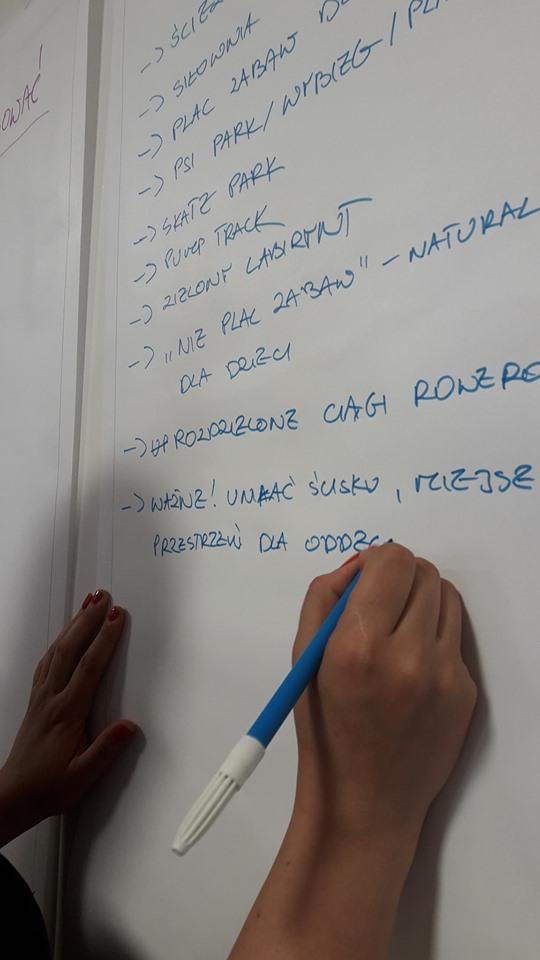 OWAĆ!
-> ŚCIEŻ
-> SIŁOWNIA
-> PLAC ZABAW
-> PSI PARK / WYBIEG / PLA
-> SKATE PARK
-> PUMP TRACK
-> ZIELONY LABIRYNT
-> "NIE PLAC ZABAW" - NATURAL
DLA DZIECI
-> ROZDZIELONE CIĄGI ROWERO
-> WAŻNE! UNIKAĆ ŚCISKU, MIEJSE
PRZESTRZEŃ DLA ODDEC